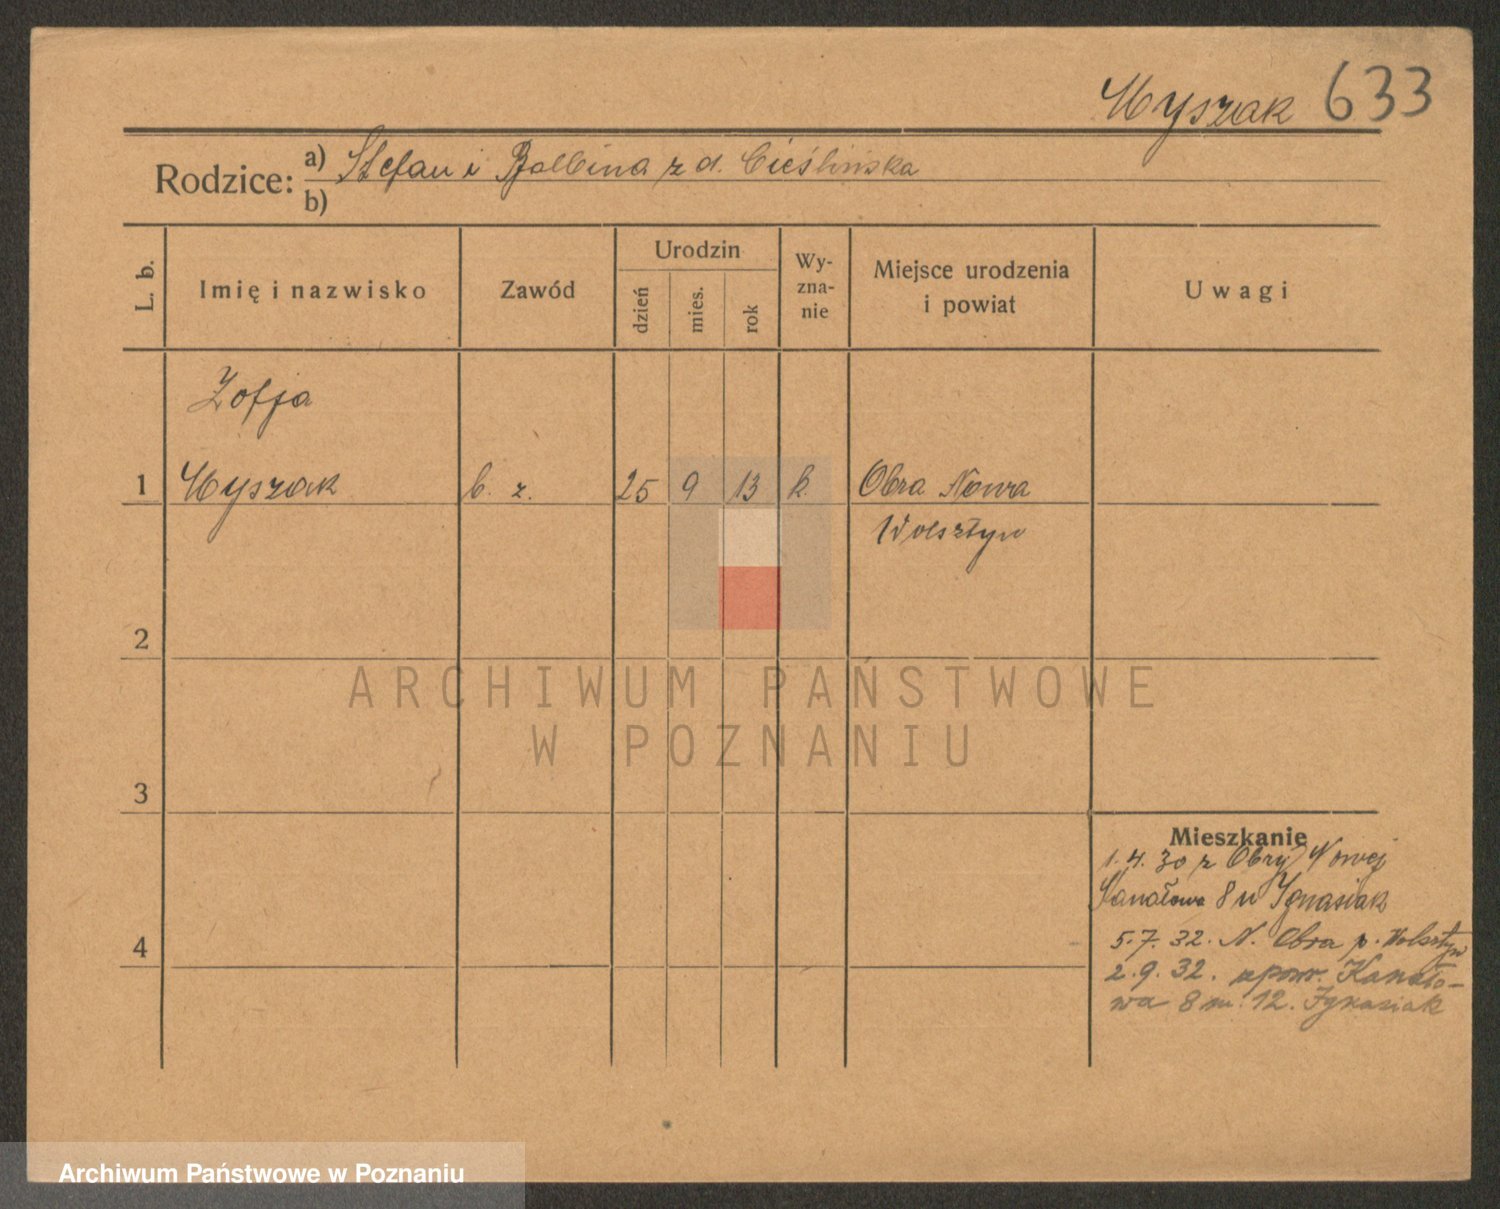 Myszak 633
Rodzice: a) Stefan i Balbina z d. Cieślińska
b)
L. b.
Imię i nazwisko
Zawód
Urodzin
dzień
mies.
rok
Wy-
zna-
nie
Miejsce urodzenia
i powiat
Uwagi
Zofja
1 Myszak b. z. 25 9 13 k. Obra Nowa
Wolsztyn
2
ARCHIWUM PAŃSTWOWE
W POZNANIU
3
Mieszkanie
1.4.30 z Obry Nowej
Kanałowa 8 u Ignasiak
4
5.7.32. N. Obra p. Wolsztyn
2.9.32. spow. Kanało-
wa 8 m. 12. Ignasiak
Archiwum Państwowe w Poznaniu